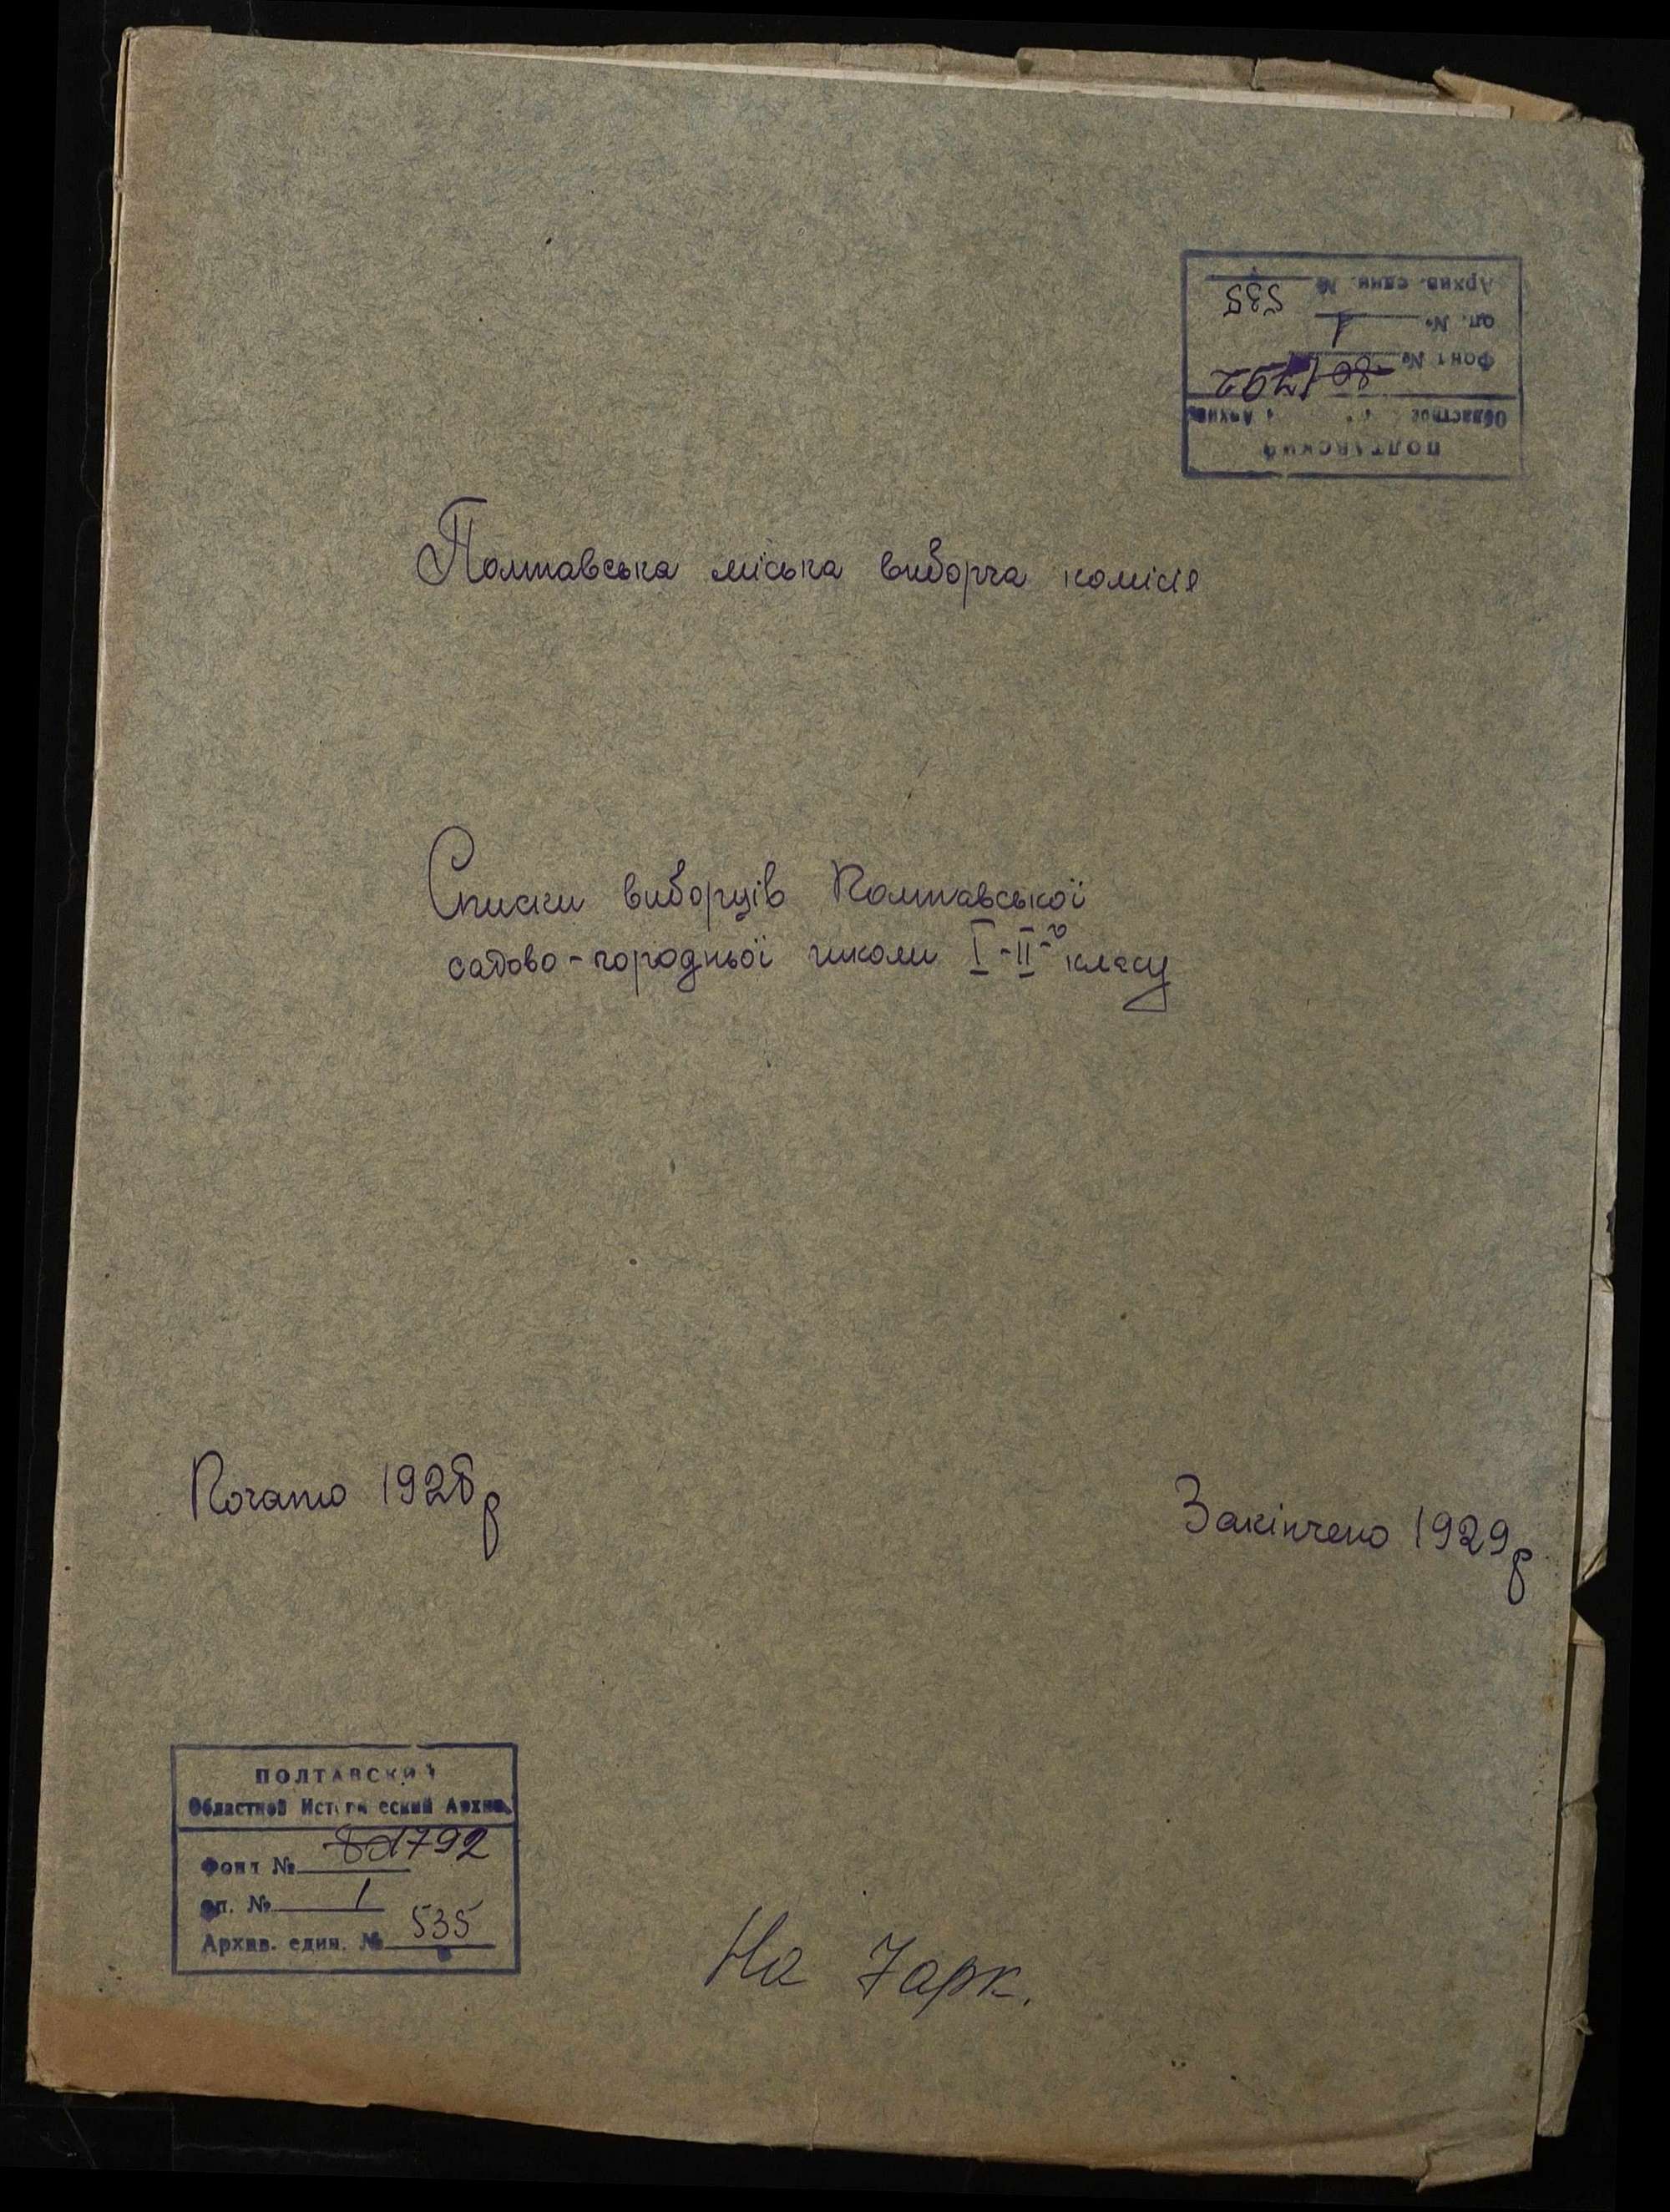 ПОЛТАВСКИЙ
Областной Архив
Фонд №
оп. № 1
Архив. един. № 535
Полтавська міська виборча комісія
Списки виборців Полтавської
садово-городньої школи I-II-о класу
Почато 1928р
Закінчено 1929р
ПОЛТАВСКИЙ
Областной Исторический Архив
Фонд № 792
оп. № 1
Архив. един. № 535
На 7 арк.